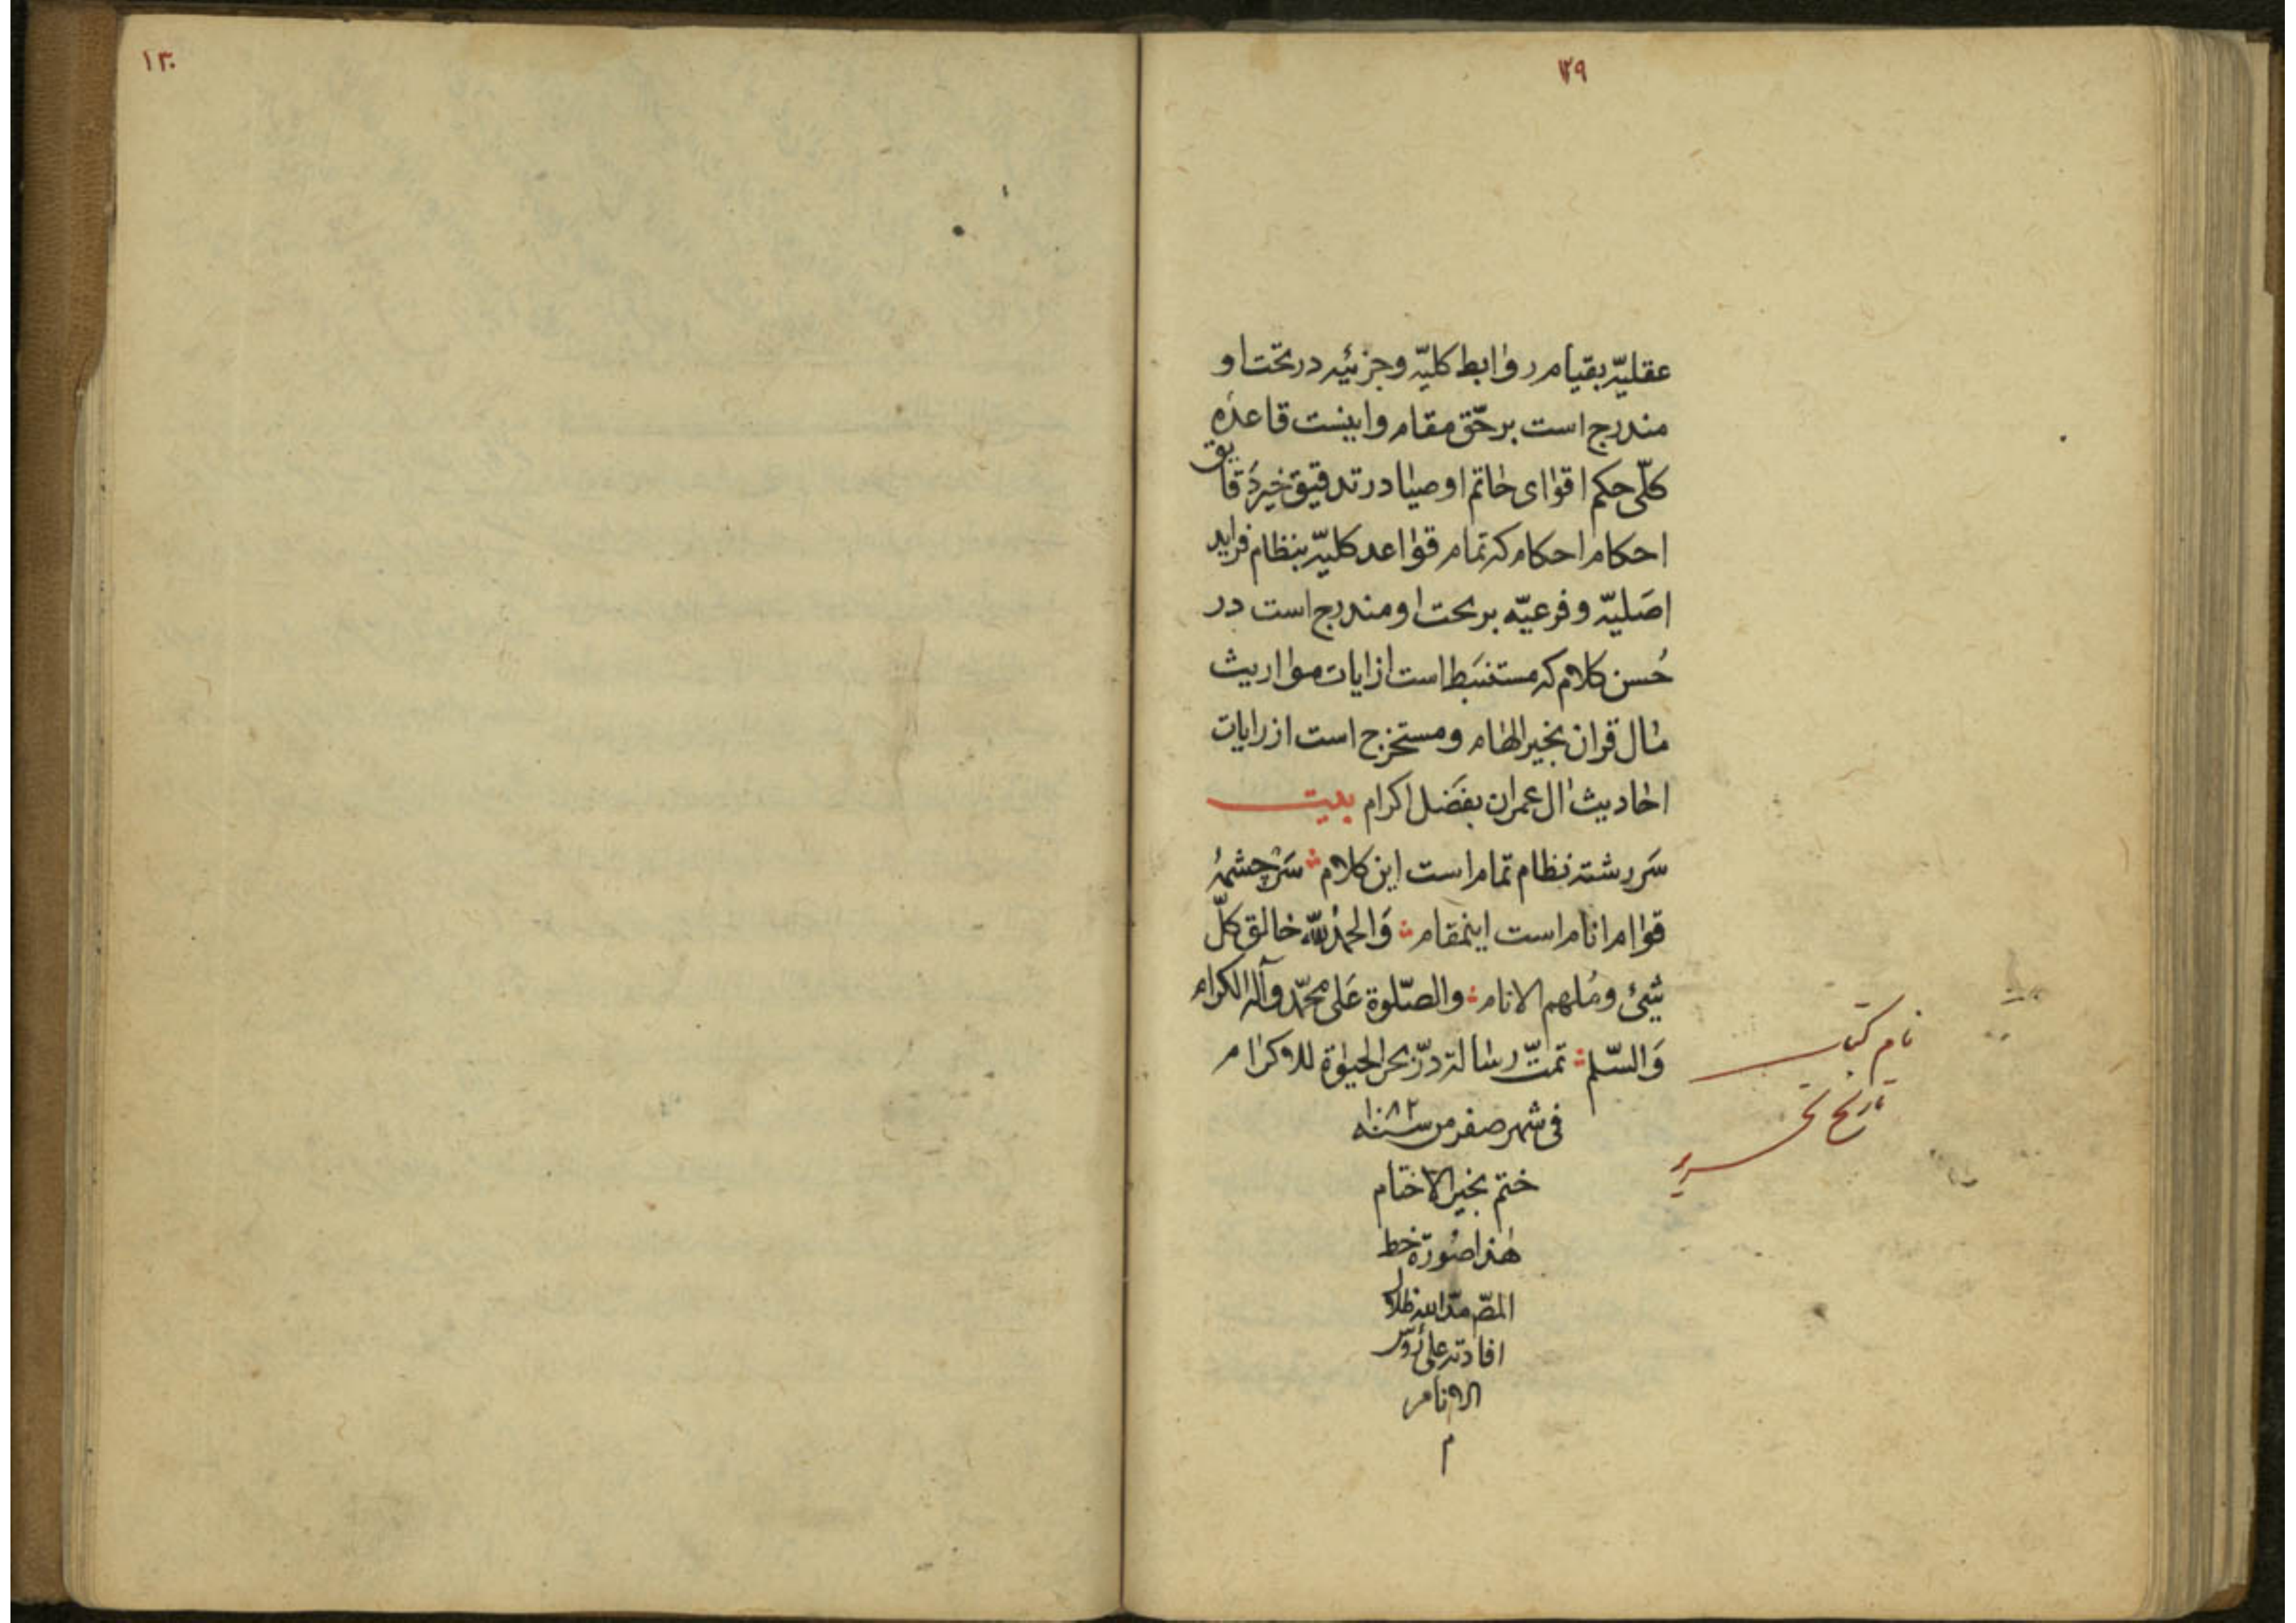 ١٢٩
عقليّه بقيام روابط كليّه و جزئيّه در تحت او
مندرج است بر حقّ مقام و اينست قاعدهٔ
كلّى حكم اقواى خاتم اوصيا در تدقيق خير دقايق
احكام احكام كه تمام قواعد كليّه بنظام فرايد
اصليّه و فرعيّه بر تحت او مندرج است در
حُسن كلام كه مستنبَط است از ايات مواريث
مال قران بخير الهام و مستخرج است از رايات
احاديث ال عمران بفضل اكرام بيت
سَر رشته نظام تمام است اين كلام ∴ سَرْ چشمهٔ
قوام انام است اينمقام ∴ وَالحمْدُ للّه خالق كلّ
شيئ و مُلهم الانام ∴ والصّلوة عَلى محمّد وآله الكرام
وَالسّلم ∴ تمتّ رسالهٔ درّ بحر الحيوة للاكرام
فى شهر صفر من سنه ١٠٨٢
ختم بخير الاختام
هذا صُورة خط
المصّ مدّ الله ظلال
افادته على رؤس
الانام
م
نام كتاب
تاريخ تحرير
١٣٠